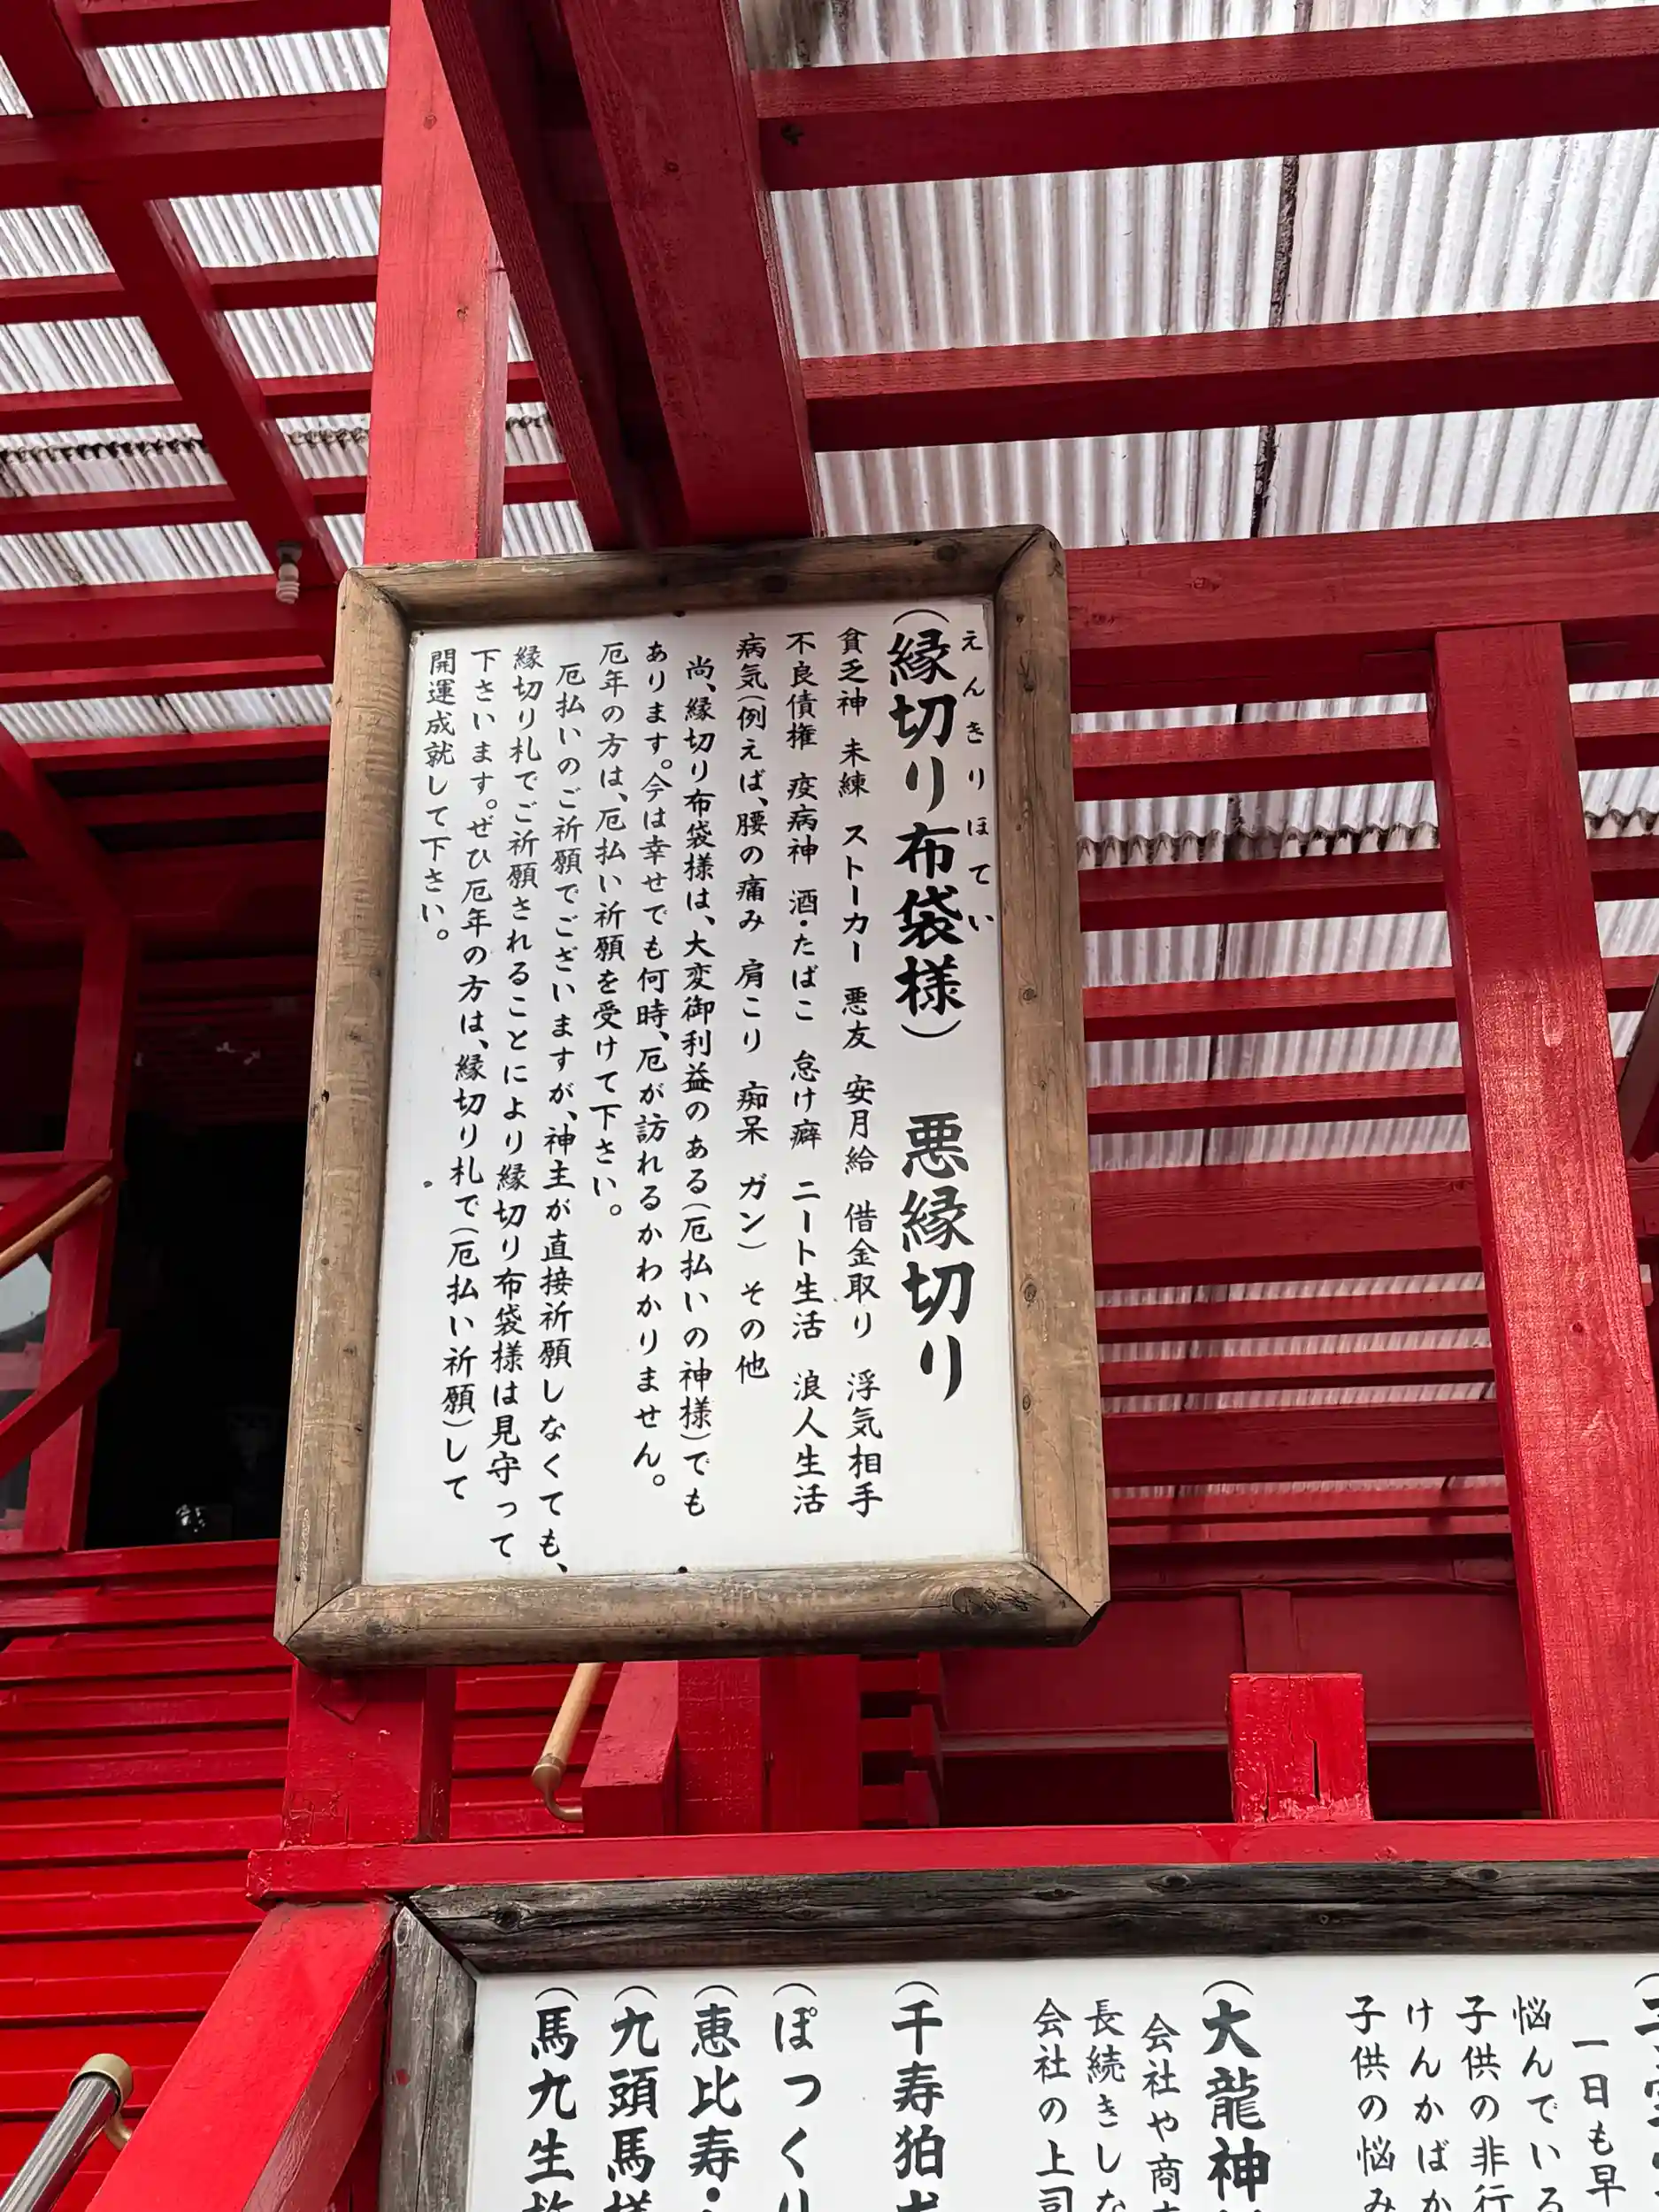 (縁切り布袋様) 悪縁切り
えんきりほてい
貧乏神 未練 ストーカー 悪友 安月給 借金取り 浮気相手
不良債権 疫病神 酒・たばこ 怠け癖 ニート生活 浪人生活
病気(例えば、腰の痛み 肩こり 痴呆 ガン) その他
尚、縁切り布袋様は、大変御利益のある(厄払いの神様)でも
あります。今は幸せでも何時、厄が訪れるかわかりません。
厄年の方は、厄払い祈願を受けて下さい。
厄払いのご祈願でございますが、神主が直接祈願しなくても、
縁切り札でご祈願されることにより縁切り布袋様は見守って
下さいます。ぜひ厄年の方は、縁切り札で(厄払い祈願)して
開運成就して下さい。
一日も早
悩んでいる
子供の非行
けんかばか
子供の悩み
(大龍神
会社や商
長続きしな
会社の上司
(千寿狛
(ぽっくり
(恵比寿・
(九頭馬様
(馬九生